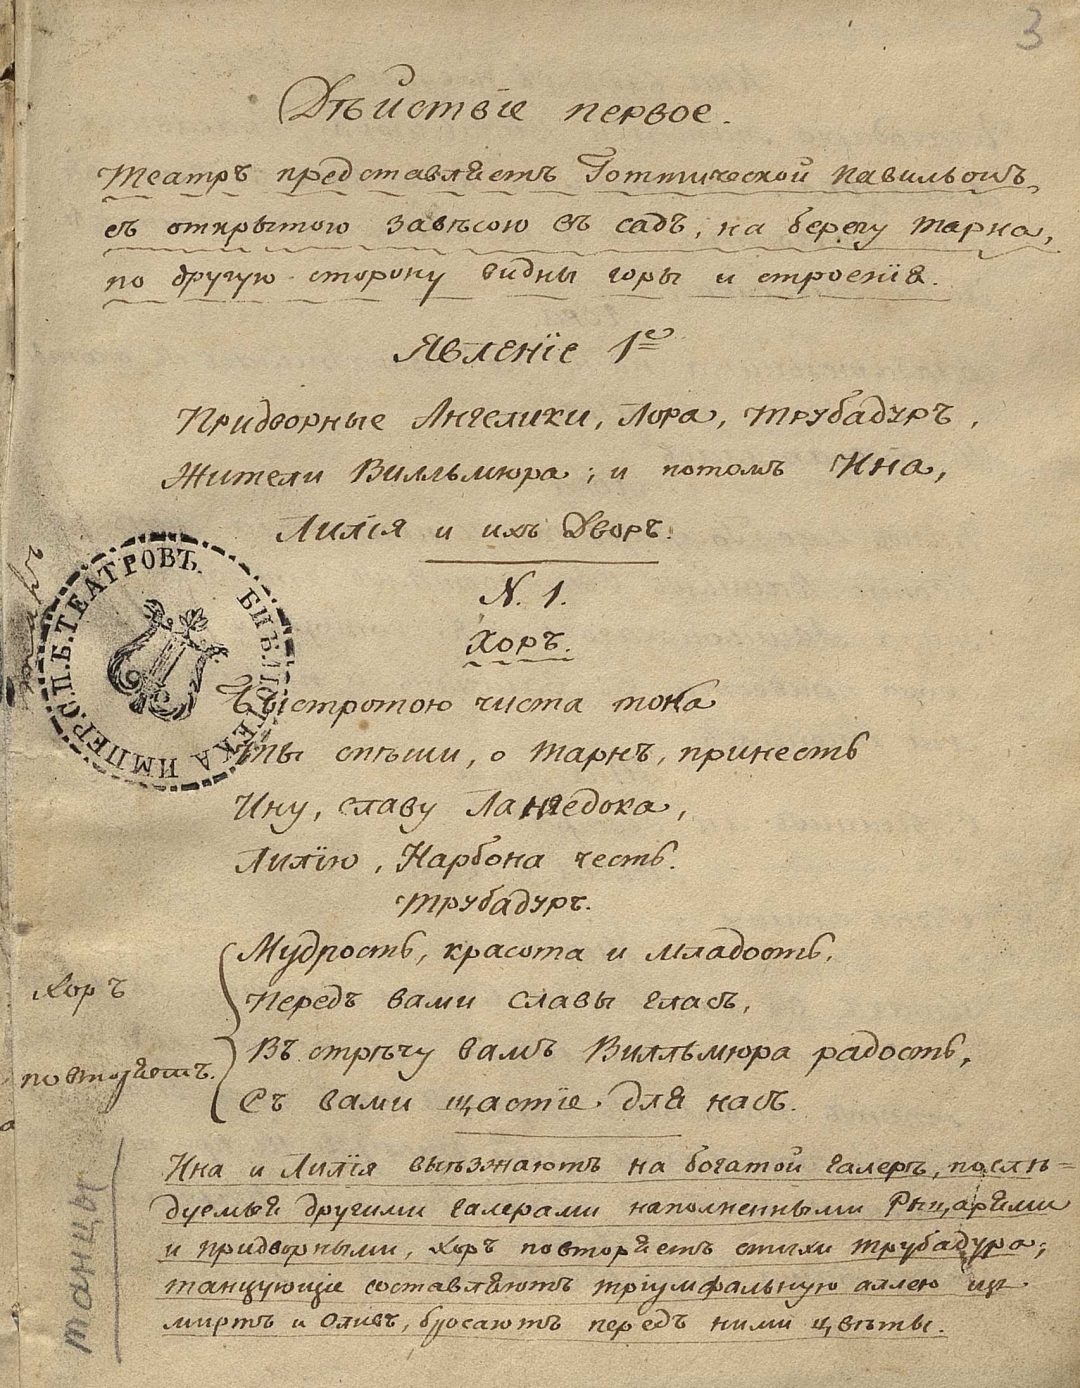 3
Дѣйствіе первое.
Театръ представляетъ Готтической павильонъ,
съ открытою завѣсою въ садъ, на берегу Тарна,
по другую сторону видны горы и строенія.
Явленіе 1е
Придворные Ангелики, Лора, Трубадуръ,
Жители Вилльмюра; и потомъ Ина,
Лилія и ихъ Дворъ.
N. 1.
Хоръ.
БИБЛІОТЕКА ИМПЕР. С.П.Б. ТЕАТРОВЪ.
Быстротою чиста тока
Ты спѣши, о Тарнъ, принесть
Ину, славу Лангедока,
Лилію, Нарбона честь.
Трубадуръ.
Мудрость, красота и младость,
Передъ вами славы гласъ,
Хоръ
Въ стрѣчу вамъ Вилльмюра радость,
повторяетъ.
Съ вами щастіе для насъ.
Ина и Лилія выѣзжаютъ на богатой галерѣ, послѣ=
дуемыя другими галерами наполненными Рыцарями
и придворными, хоръ повторяетъ стихи Трубадура;
танцующіе составляютъ тріумфальную аллею изъ
миртъ и оливъ, бросаютъ передъ ними цвѣты.
танцы